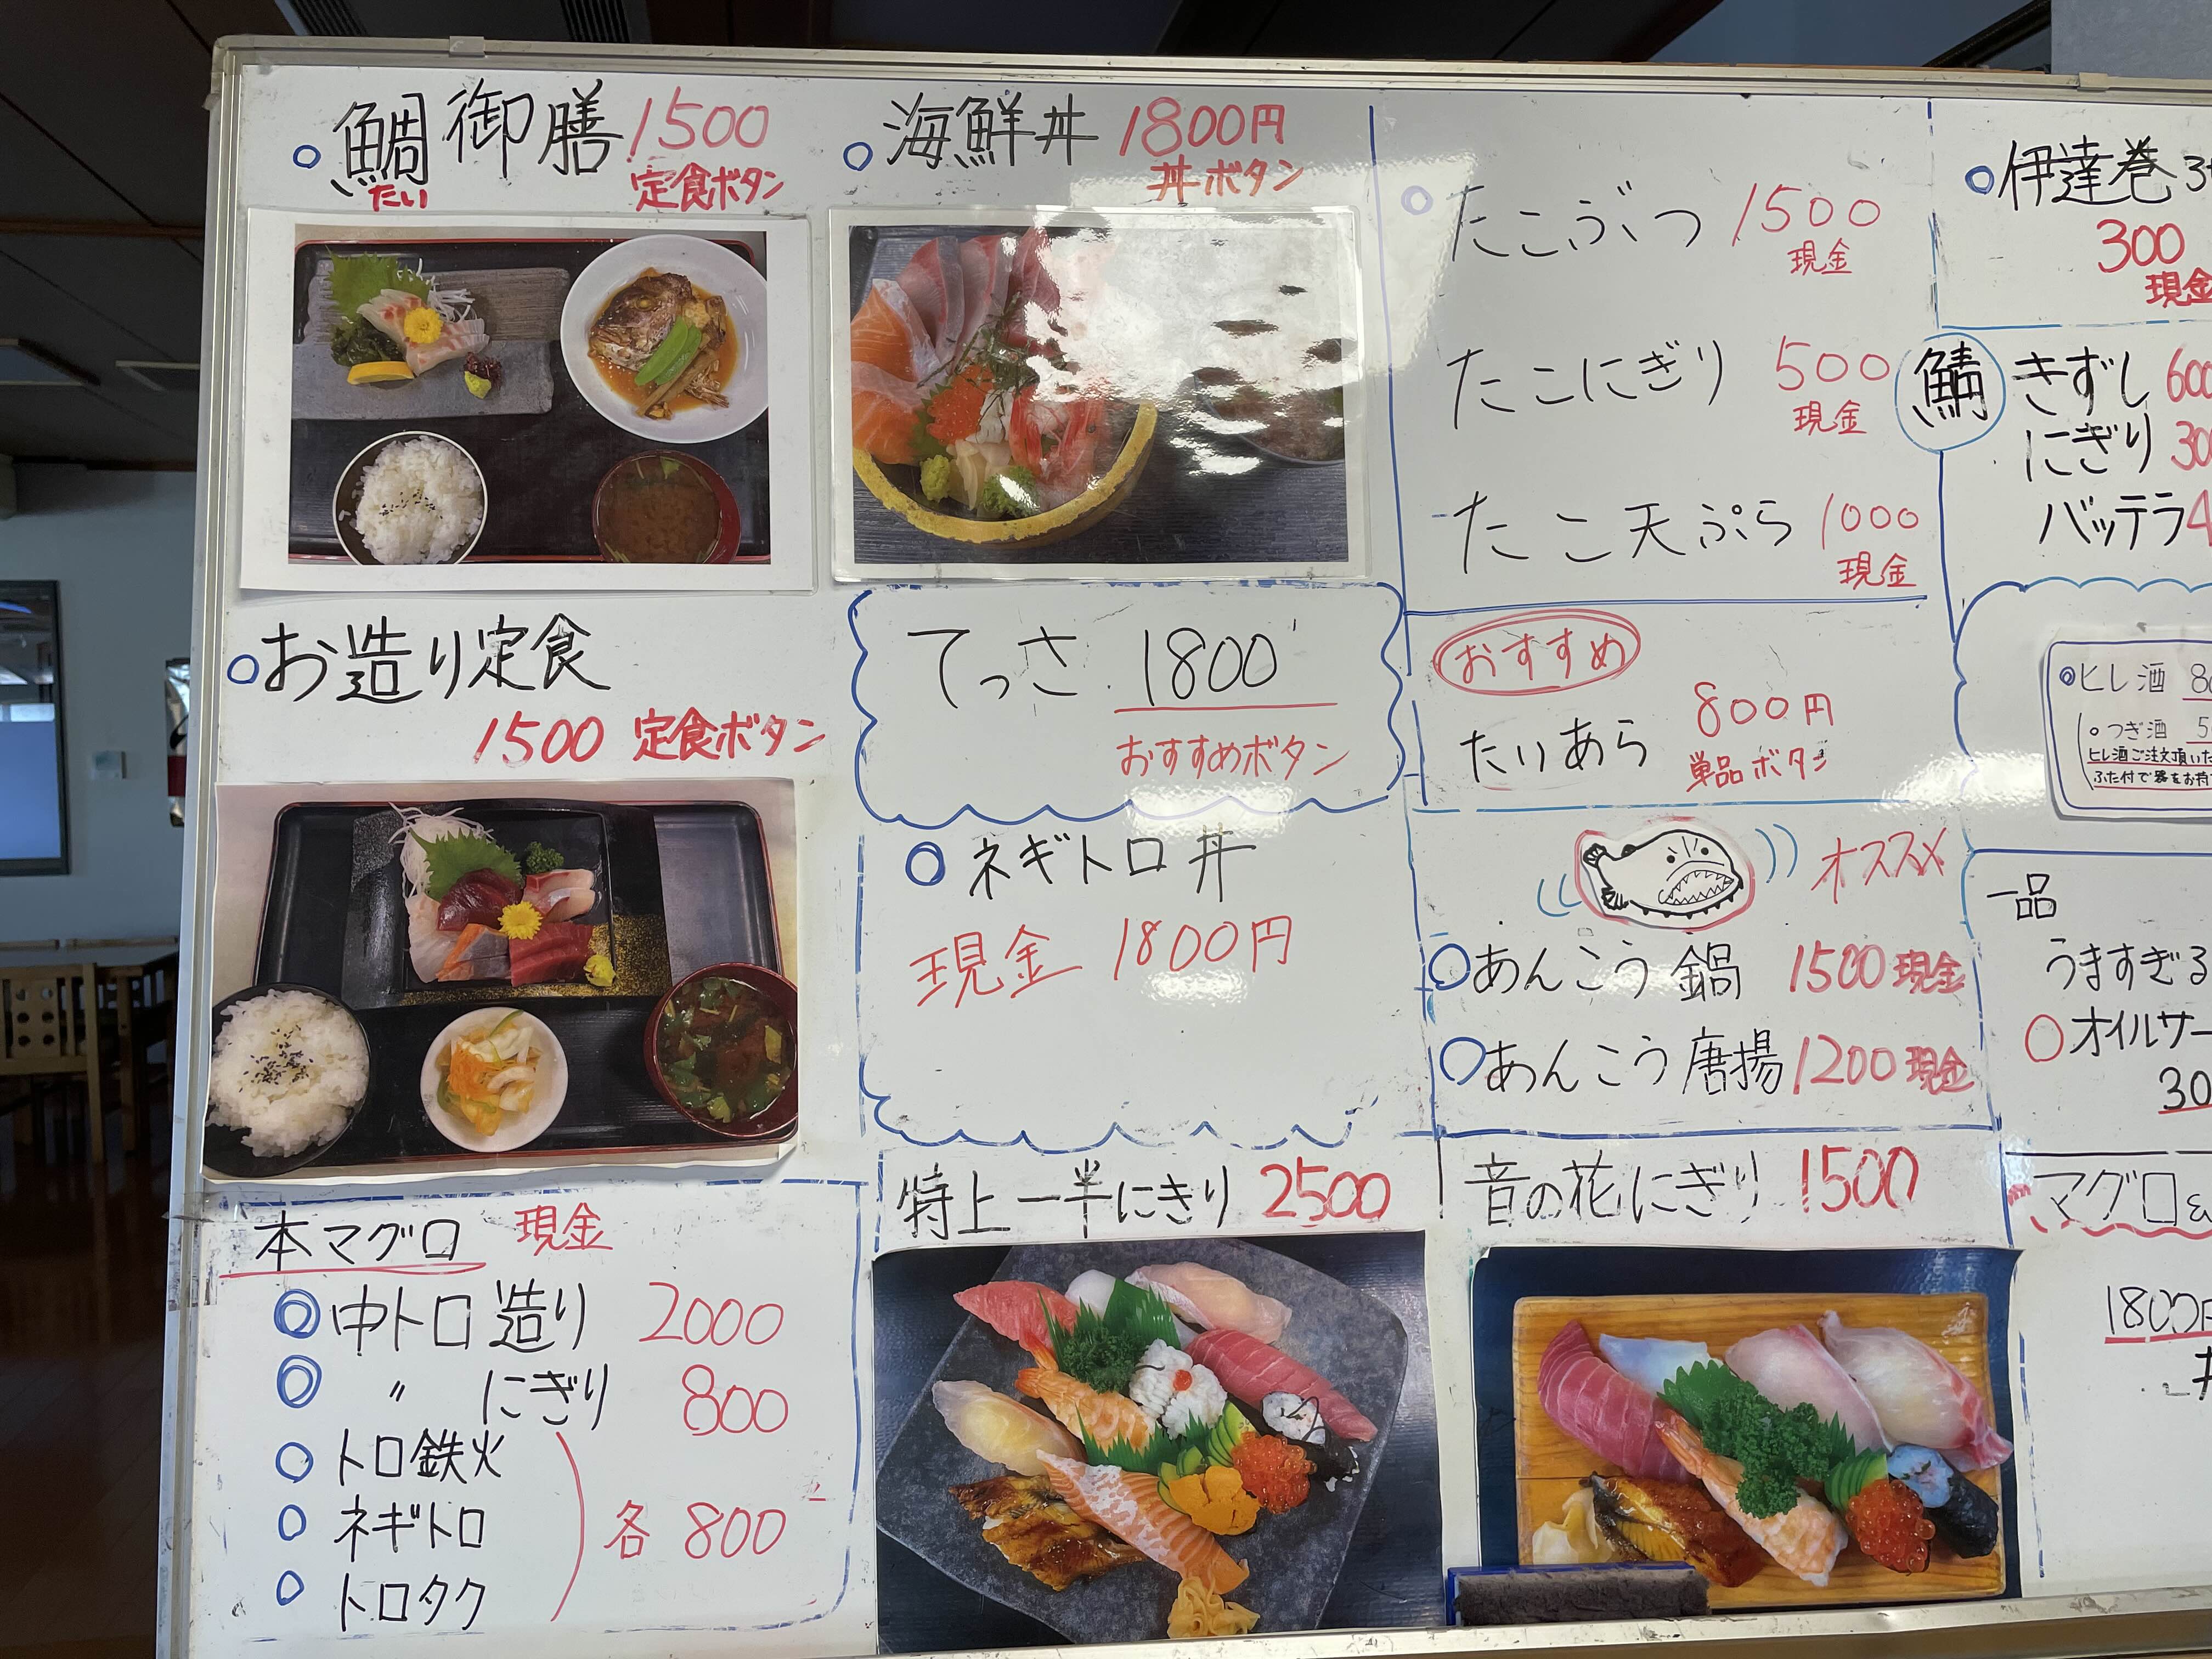 鯛御膳 1500
たい 定食ボタン
海鮮丼 1800円
丼ボタン
お造り定食
1500 定食ボタン
てっさ 1800
おすすめボタン
ネギトロ丼
現金 1800円
本マグロ 現金
中トロ造り 2000
〃 にぎり 800
トロ鉄火
ネギトロ
トロタク
各 800
特上一半にきり 2500
たこぶつ 1500
現金
たこにぎり 500
現金
たこ天ぷら 1000
現金
おすすめ
たいあら 800円
単品ボタン
オススメ
あんこう鍋 1500 現金
あんこう唐揚 1200 現金
音の花にぎり 1500
伊達巻
300
現金
鯖
きずし
にぎり
バッテラ
ヒレ酒
つぎ酒
ヒレ酒ご注文頂いた
ふた付で器をお持
一品
うますぎる
オイルサー
マグロ&
1800円